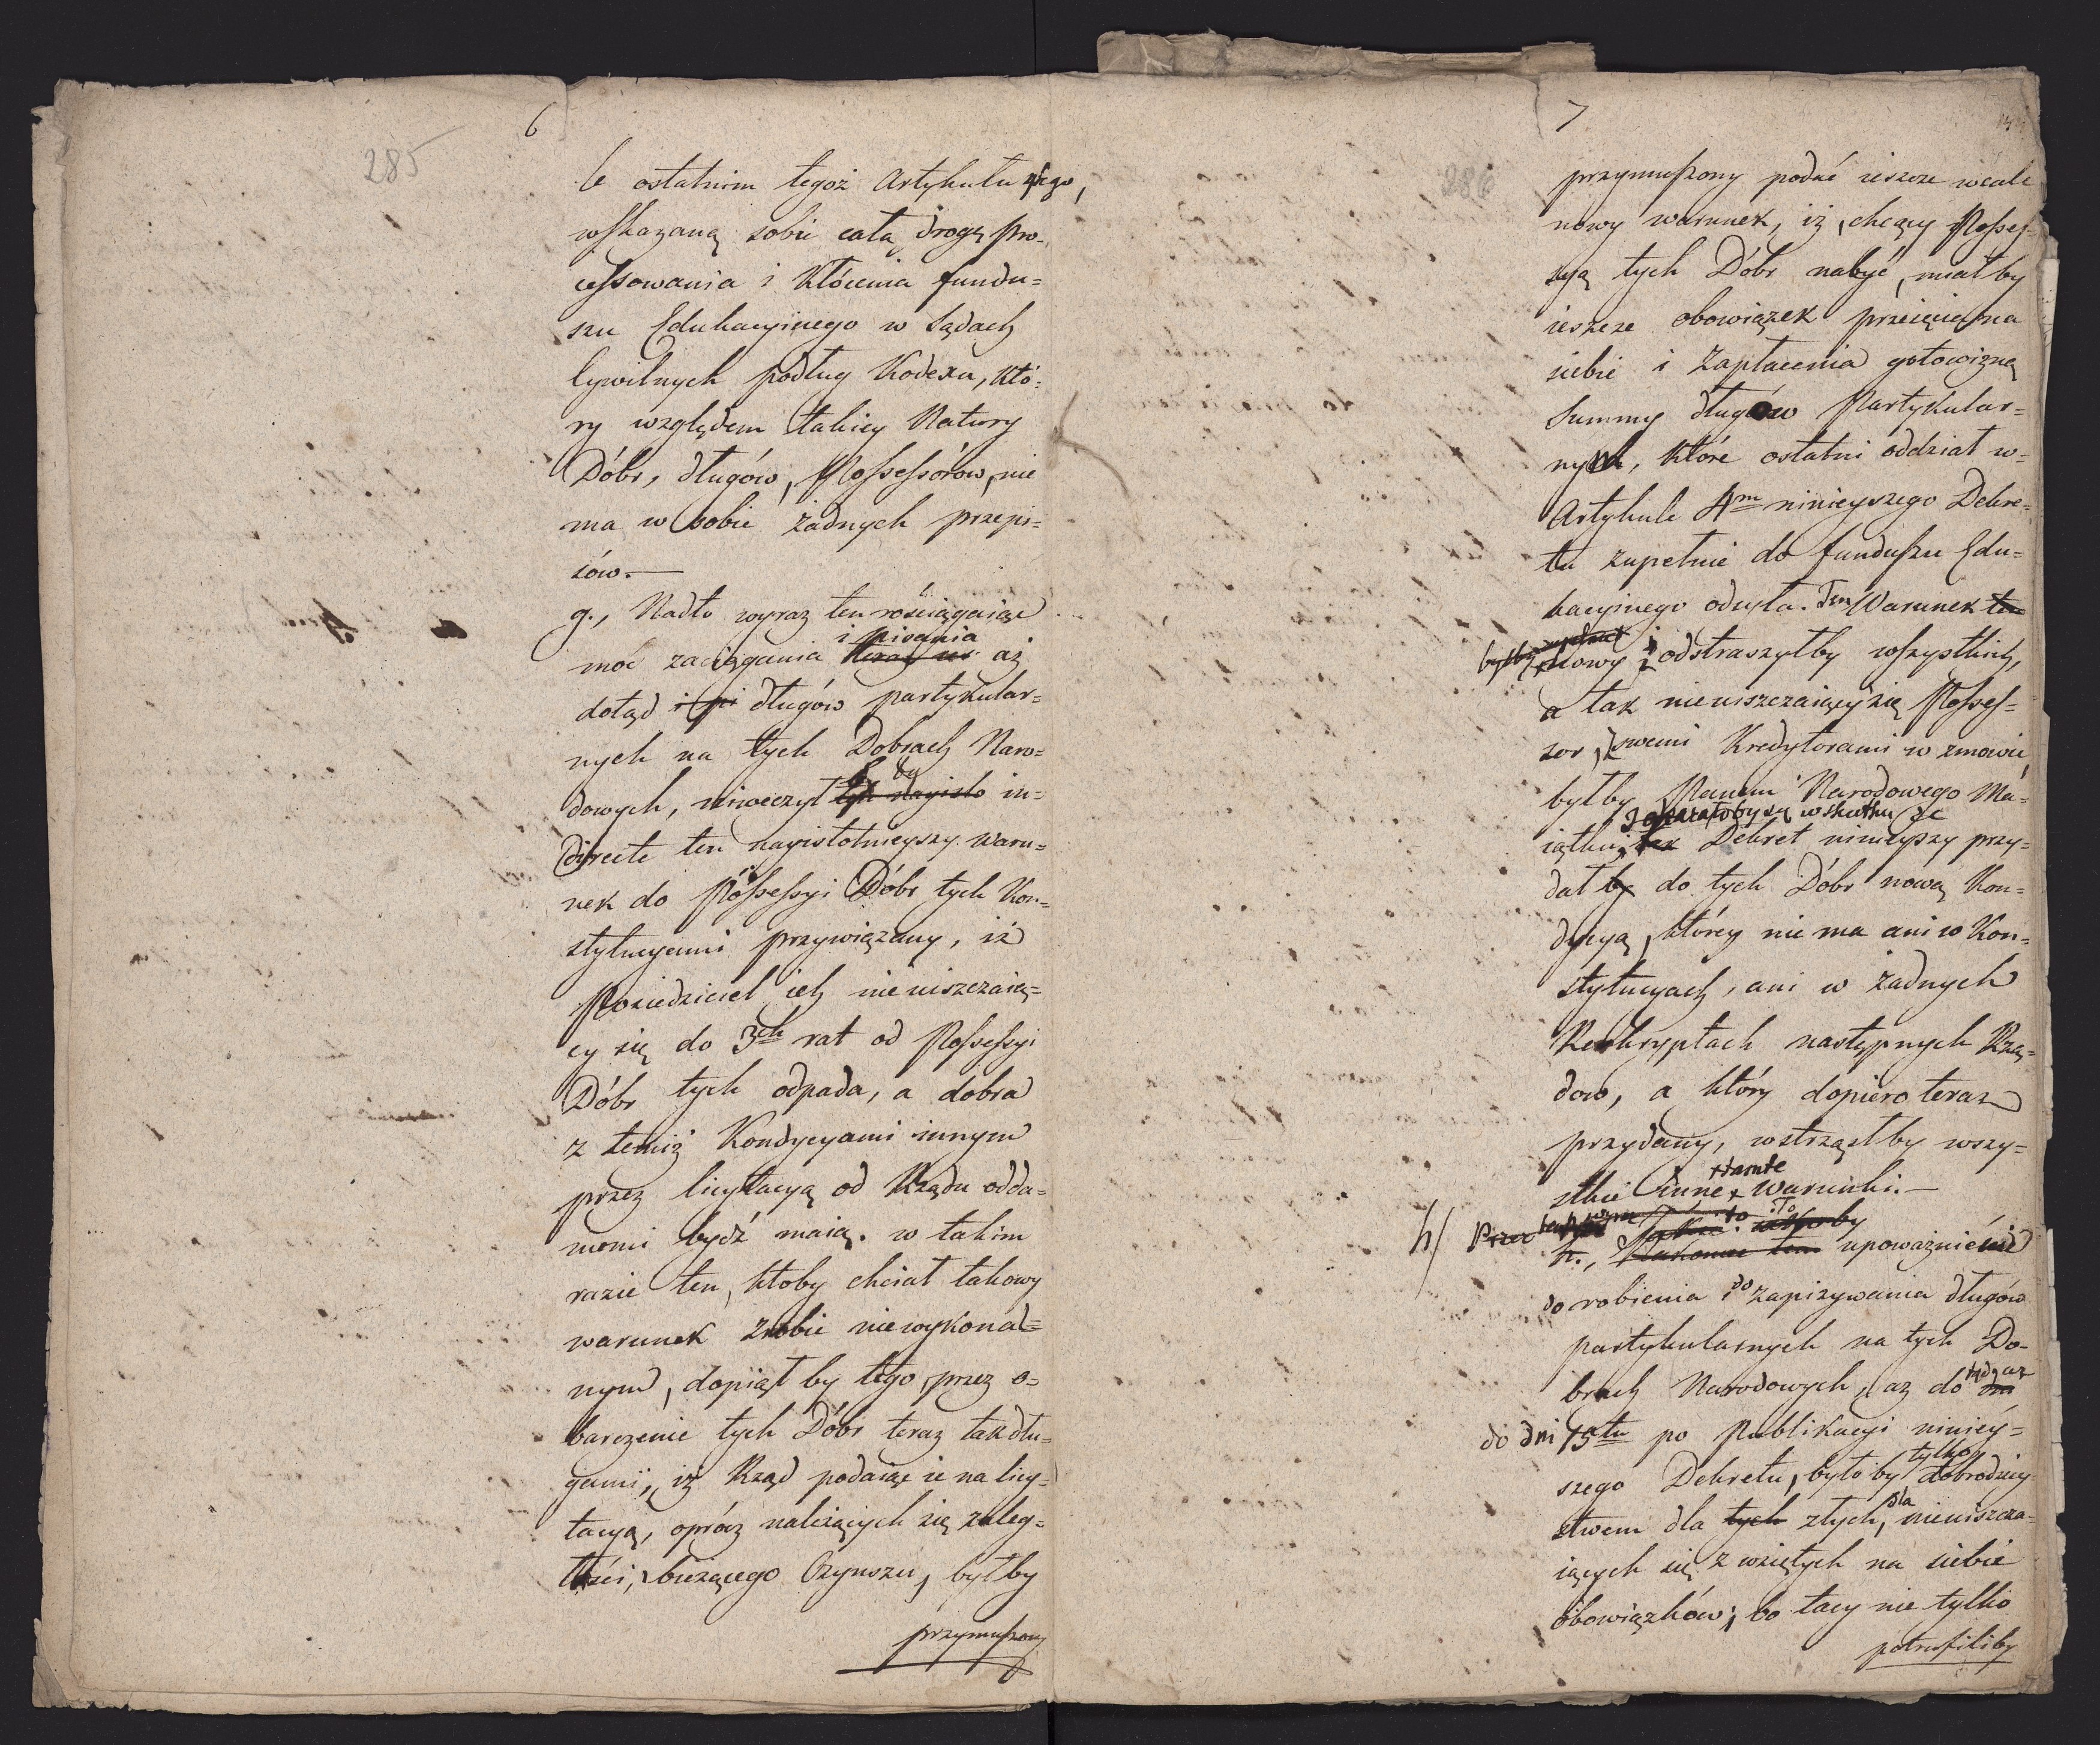 6
285
e ostatnim tegoż Artykułu 4tego,
wskazaną sobie całą drogę pro-
cessowania i kłócenia fundu=
szu Edukacyinego w Sądach
Cywilnych podług Kodexu, któ=
ry względem takiey Natury
Dóbr, długów, Possessórow, nie
ma w sobie żadnych przepi=
sów.—
g., Nadto wyraz ten rościągaiąc
i pisania
moc zaciągania aż
dotąd i pi długów partykular=
nych na tych Dobrach Naro=
by
dowych, niweczył in=
directe ten nayistotnieyszy waru=
nek do Possessyi Dóbr tych Kon=
stytucyami przywiązany, iż
Posiedziciel ich nieuiszczaią=
cy się do 3ch rat od Possessyi
Dóbr tych odpada, a dobra
z temiż Kondycyami innym
przez licytacyą od Rządu odda=
nemi bydź maią. w takim
razie ten, ktoby chciał takowy
warunek zrobić niewykonal=
nym, dopiął by tego, przez o=
barczenie tych Dóbr teraz tak dłu=
gami, iż Rząd podaiąc ie na licy=
tacyą, oprócz należących się zaleg=
łości, i bieżącego Czynszu, byłby
przymuszony
7
286
przymuszony podać ieszcze wcale
nowy warunek, iż, chcący Posses=
syą tych Dóbr nabyć, miałby
ieszcze obowiązek przeięcia na
siebie i zapłacenia gotowizną
Summy długów Partykular=
nych, które ostatni oddział w=
Artykule 4m ninieyszego Dekre=
tu zupełnie do funduszu Edu=
kacyinego odsyła. Ten Warunek ten
byłby nowy i odstraszyłby wszystkich,
a tak nieuiszczaiący się Posses=
sor, z swemi Kredytorami w zmowie,
byłby Panem Narodowego Ma=
I okazałoby się w skutku że
iątku. Dekret ninieyszy przy=
dał by do tych Dóbr nową Kon=
dycyą, którey nie ma ani w Kon=
stytucyach, ani w żadnych
Reskryptach następnych Rzą=
dow, a który dopiero teraz
przydany, wstrząsłby wszy=
stkie inne warunki.—
h/ Przez
h., upoważnienie
do robienia i do zapisywania długów
partykularnych na tych Do-
tąd, aż
brach Narodowych, aż do
do dni 15tu po Publikacyi niniey=
tylko
szego Dekretu, było by dobrodziey
dla
stwem dla tych złych, nieuiszcza=
iących się z wziętych na siebie
obowiązków; bo tacy nie tylko
potrafiliby